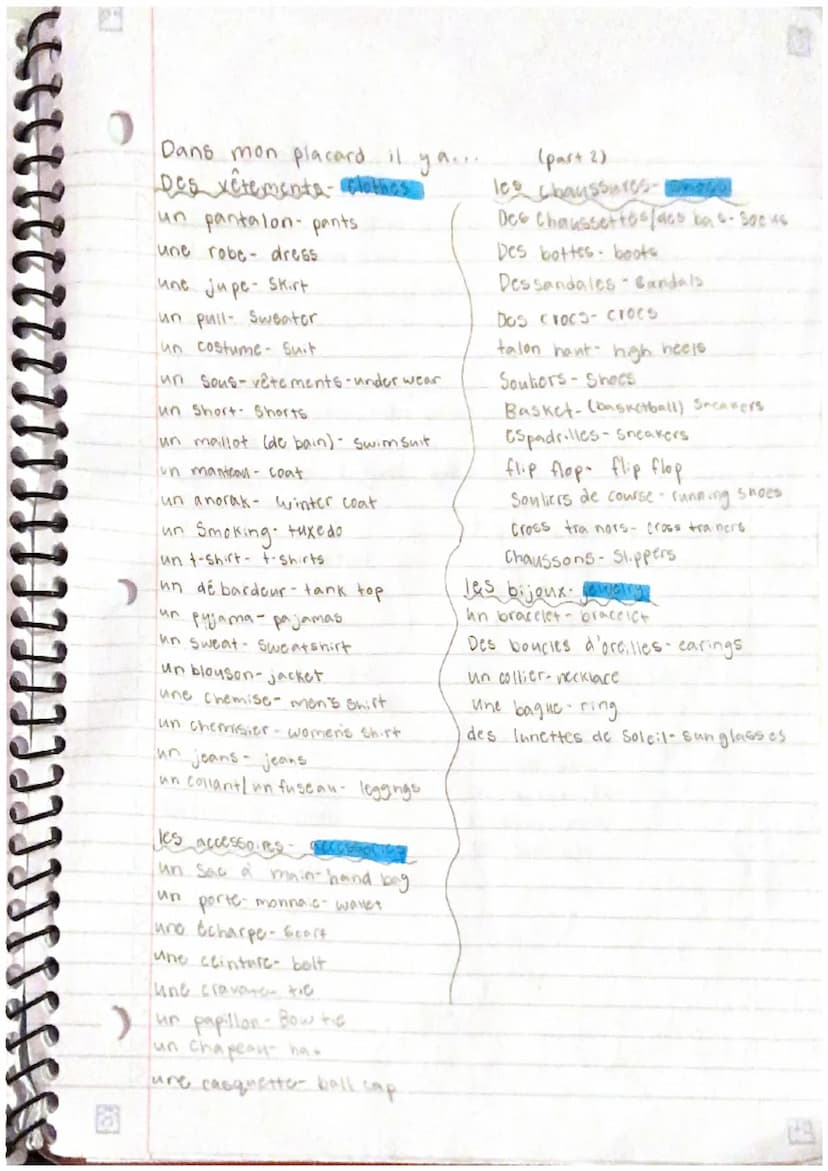 Dans mon placard il ya...
Des vêtements- clothes
un pantalon- pants
une robe- dress
une jupe- Skirt
un pull- Sweater
un costume- Suit
un sous-vêtements-under wear
un Short- Shorts
un maillot (de bain)- swimsuit
un manteau- coat
un anorak- winter coat
un Smoking- tuxedo
un t-shirt- t-shirts
un débardeur- tank top
un pyjama- pajamas
un sweat- Sweatshirt
un blouson- jacket
une chemise- men's shirt
un chemisier- women's shirt
un jeans- jeans
un collant/un fuseau- leggngs
les accessoires- accessories
un Sac à main-hand bag
un porte-monnaie- wallet
une écharpe- Scarf
une ceinture- belt
une cravate- tie
un papillon- Bow tie
un chapeau- hat
une casquette- ball cap
(part 2)
les chaussures- shoes
Des Chaussettes/des bas- Socks
Des bottes- boots
Des sandales- Sandals
Des crocs- crocs
talon haut- high heels
Souliers- Shoes
Basket-(basketball) Sneakers
Espadrilles- Sneakers
flip flop- flip flop
Souliers de course- running shoes
Cross trainors- cross trainers
Chaussons- Slippers
les bijoux- jewelry
un bracelet- bracelet
Des boucles d'oreilles- earings
un collier- necklace
une bague- ring
des lunettes de Soleil- sunglasses